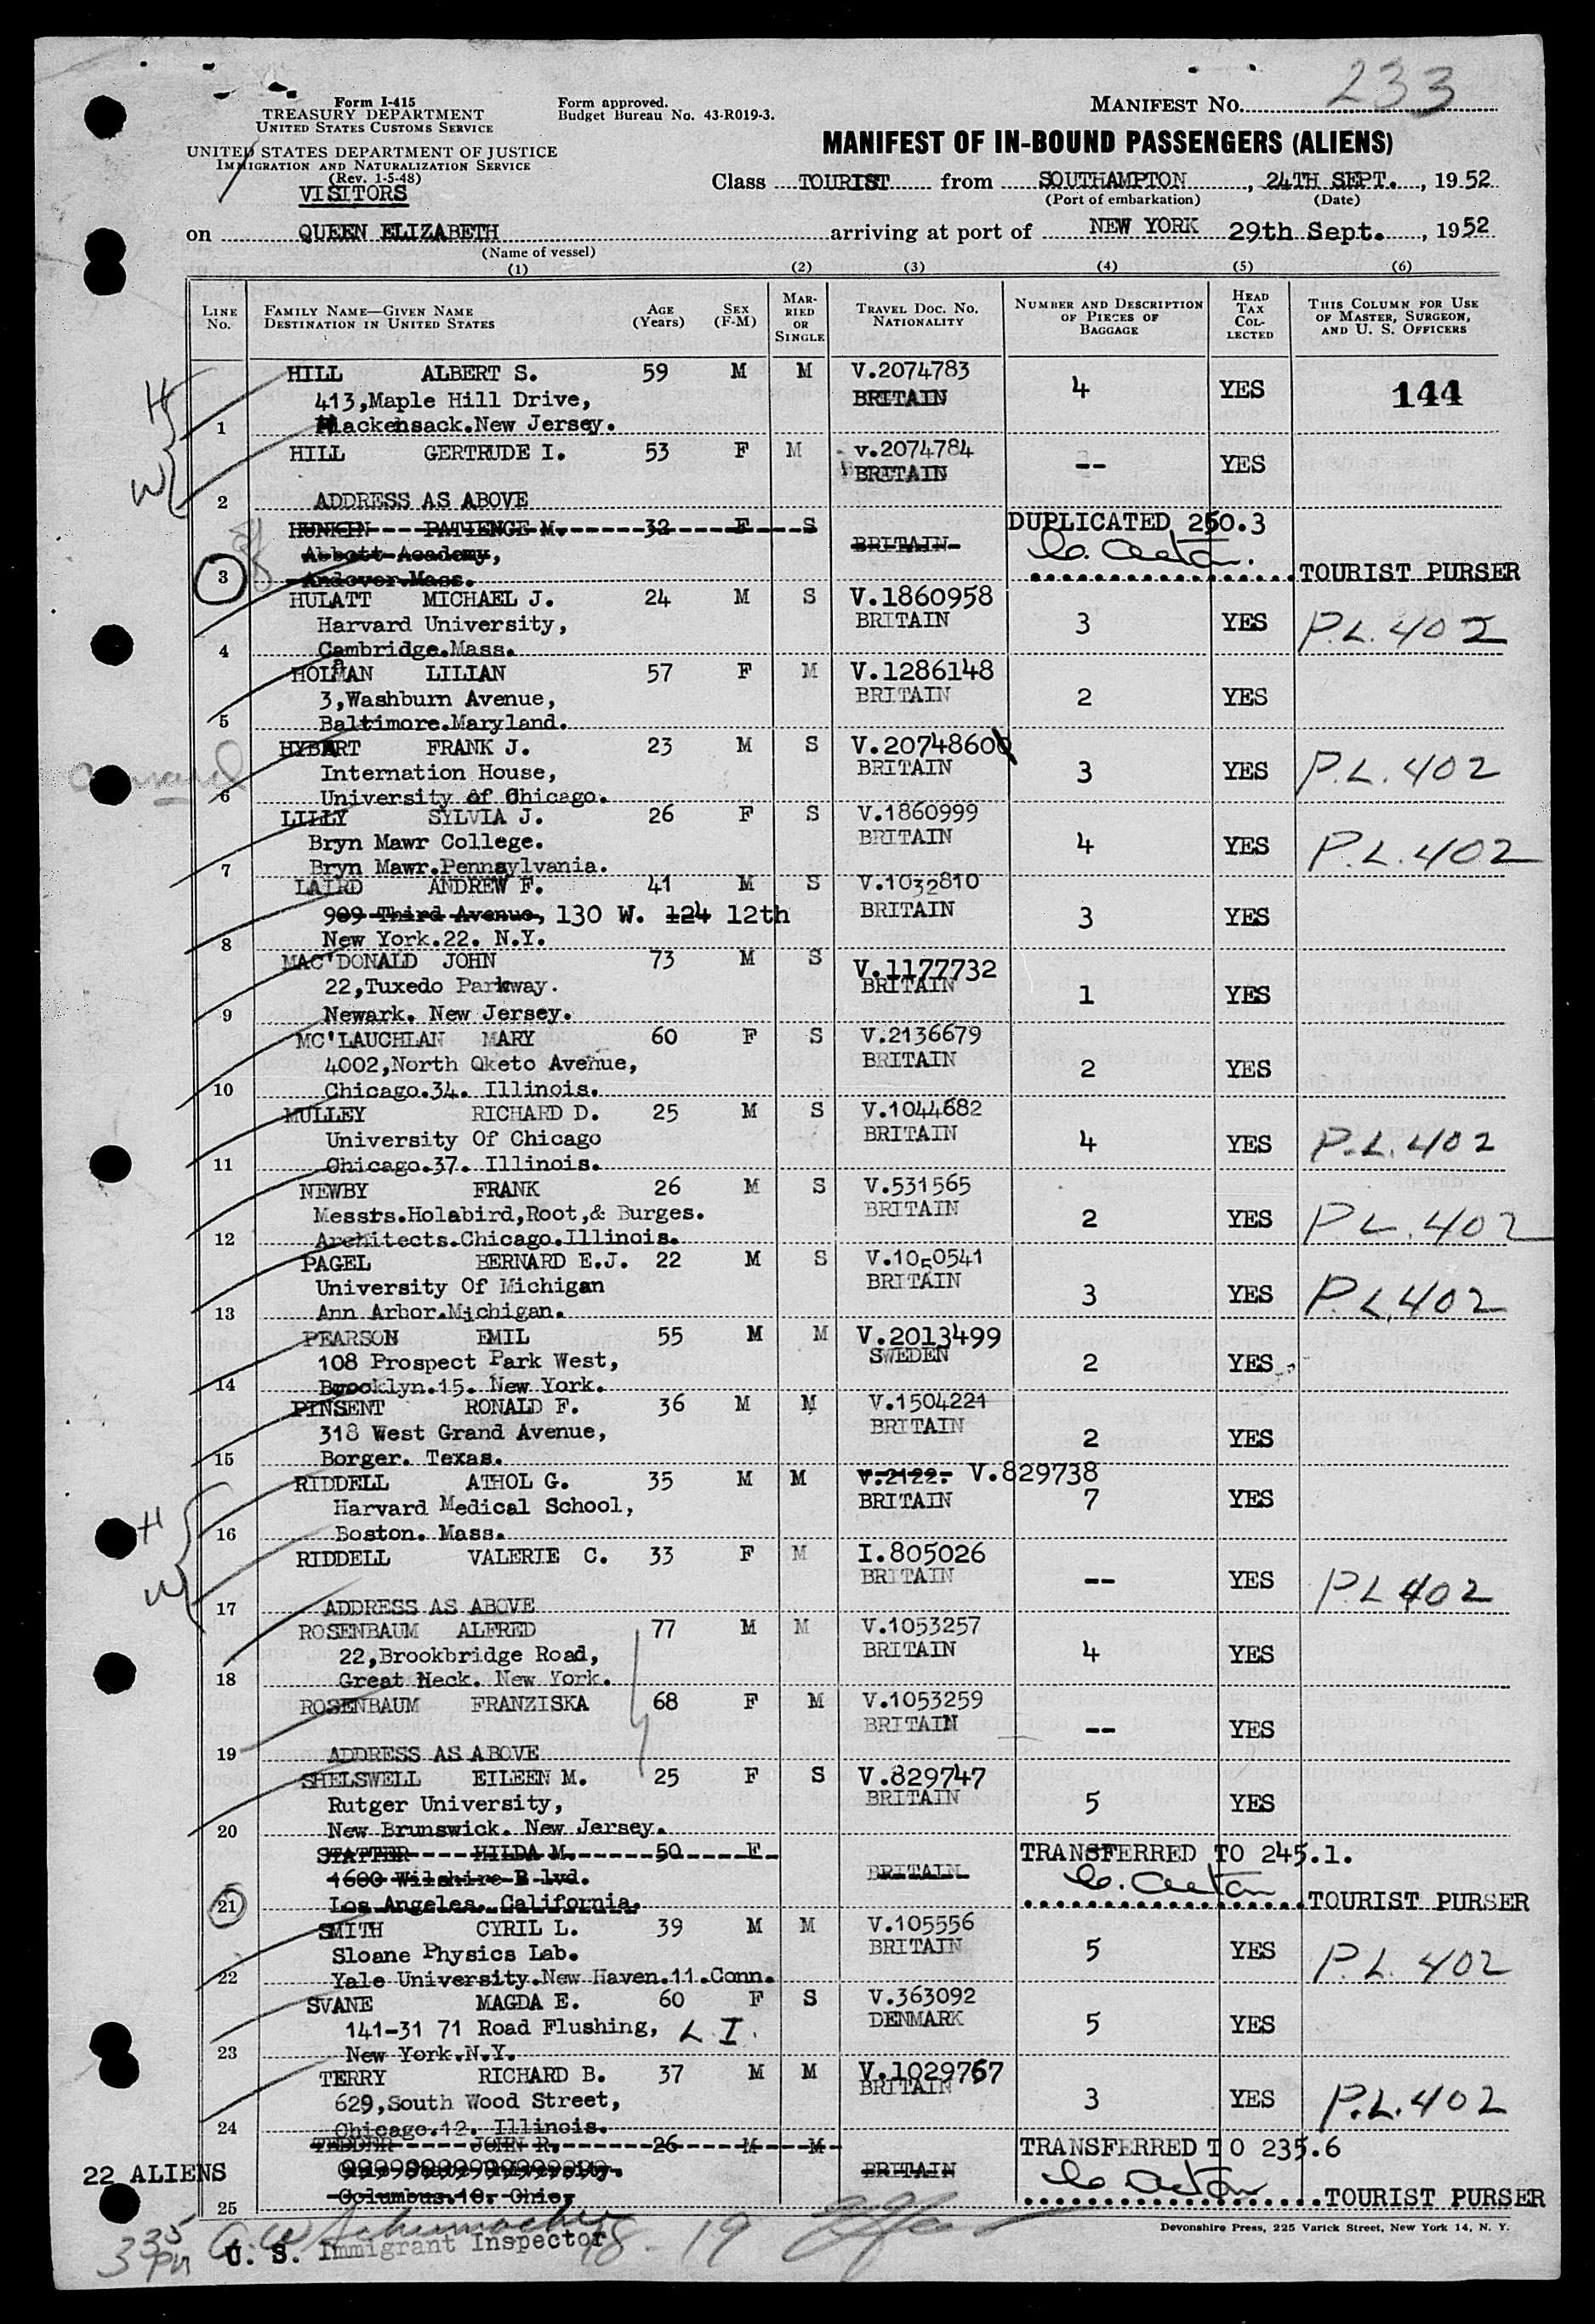 233
Form I-415
TREASURY DEPARTMENT
UNITED STATES CUSTOMS SERVICE
Form approved.
Budget Bureau No. 43-R019-3.
MANIFEST NO.
UNITED STATES DEPARTMENT OF JUSTICE
IMMIGRATION AND NATURALIZATION SERVICE
(Rev. 1-5-48)
VISITORS
MANIFEST OF IN-BOUND PASSENGERS (ALIENS)
Class TOURIST from SOUTHAMPTON, 24TH SEPT., 1952
(Port of embarkation) (Date)
on QUEEN ELIZABETH arriving at port of NEW YORK 29th Sept., 1952
(Name of vessel)
(1) (2) (3) (4) (5) (6)
LINE NO. FAMILY NAME—GIVEN NAME DESTINATION IN UNITED STATES AGE (Years) SEX (F-M) MARRIED OR SINGLE TRAVEL DOC. NO. NATIONALITY NUMBER AND DESCRIPTION OF PIECES OF BAGGAGE HEAD TAX COLLECTED THIS COLUMN FOR USE OF MASTER, SURGEON, AND U. S. OFFICERS
HILL ALBERT S. 59 M M V.2074783
413,Maple Hill Drive, BRITAIN 4 YES 144
1 Hackensack.New Jersey.
HILL GERTRUDE I. 53 F M v.2074784
BRITAIN -- YES
2 ADDRESS AS ABOVE
HUNKIN PATIENCE M. 32 F S DUPLICATED 250.3
Abbott Academy, BRITAIN
3 Andover.Mass. TOURIST PURSER
HULATT MICHAEL J. 24 M S V.1860958
Harvard University, BRITAIN 3 YES P.L. 402
4 Cambridge.Mass.
HOLMAN LILIAN 57 F M V.1286148
3,Washburn Avenue, BRITAIN 2 YES
5 Baltimore.Maryland.
HYBART FRANK J. 23 M S V.2074860
Internation House, BRITAIN 3 YES P.L. 402
6 University of Chicago.
LILLY SYLVIA J. 26 F S V.1860999
Bryn Mawr College. BRITAIN 4 YES P.L.402
7 Bryn Mawr.Pennsylvania.
LAIRD ANDREW F. 41 M S V.1032810
909 Third Avenue, 130 W. 124 12th BRITAIN 3 YES
8 New York.22. N.Y.
MAC'DONALD JOHN 73 M S V.1177732
22,Tuxedo Parkway. BRITAIN 1 YES
9 Newark. New Jersey.
MC'LAUCHLAN MARY 60 F S V.2136679
4002,North Oketo Avenue, BRITAIN 2 YES
10 Chicago.34. Illinois.
MULLEY RICHARD D. 25 M S V.1044682
University Of Chicago BRITAIN 4 YES P.L. 402
11 Chicago.37. Illinois.
NEWBY FRANK 26 M S V.531565
Messrs.Holabird,Root,& Burges. BRITAIN 2 YES P.L.402
12 Architects.Chicago.Illinois.
PAGEL BERNARD E.J. 22 M S V.1050541
University Of Michigan BRITAIN 3 YES P.L.402
13 Ann Arbor.Michigan.
PEARSON EMIL 55 M M V.2013499
108 Prospect Park West, SWEDEN 2 YES
14 Brooklyn.15. New York.
PINSENT RONALD F. 36 M M V.1504221
318 West Grand Avenue, BRITAIN 2 YES
15 Borger. Texas.
RIDDELL ATHOL G. 35 M M V.2122. V.829738
Harvard Medical School, BRITAIN 7 YES
16 Boston. Mass.
RIDDELL VALERIE C. 33 F M I.805026
BRITAIN -- YES P.L 402
17 ADDRESS AS ABOVE
ROSENBAUM ALFRED 77 M M V.1053257
22,Brookbridge Road, BRITAIN 4 YES
18 Great Neck. New York.
ROSENBAUM FRANZISKA 68 F M V.1053259
BRITAIN -- YES
19 ADDRESS AS ABOVE
SHELSWELL EILEEN M. 25 F S V.829747
Rutger University, BRITAIN 5 YES
20 New Brunswick. New Jersey.
STATTER HILDA M. 50 F TRANSFERRED TO 245.1.
1600 Wilshire B lvd. BRITAIN
21 Los Angeles. California. TOURIST PURSER
SMITH CYRIL L. 39 M M V.105556
Sloane Physics Lab. BRITAIN 5 YES P.L. 402
22 Yale University.New Haven.11.Conn.
SVANE MAGDA E. 60 F S V.363092
141-31 71 Road Flushing, L.I. DENMARK 5 YES
23 New York.N.Y.
TERRY RICHARD B. 37 M M V.1029767
629,South Wood Street, BRITAIN 3 YES P.L.402
24 Chicago.12. Illinois.
TEDDER JOHN R. 26 M M TRANSFERRED TO 235.6
22 ALIENS BRITAIN
25 Columbus.10. Ohio, TOURIST PURSER
Devonshire Press, 225 Varick Street, New York 14, N. Y.
335 PM
U. S. Immigrant Inspector 18 - 19